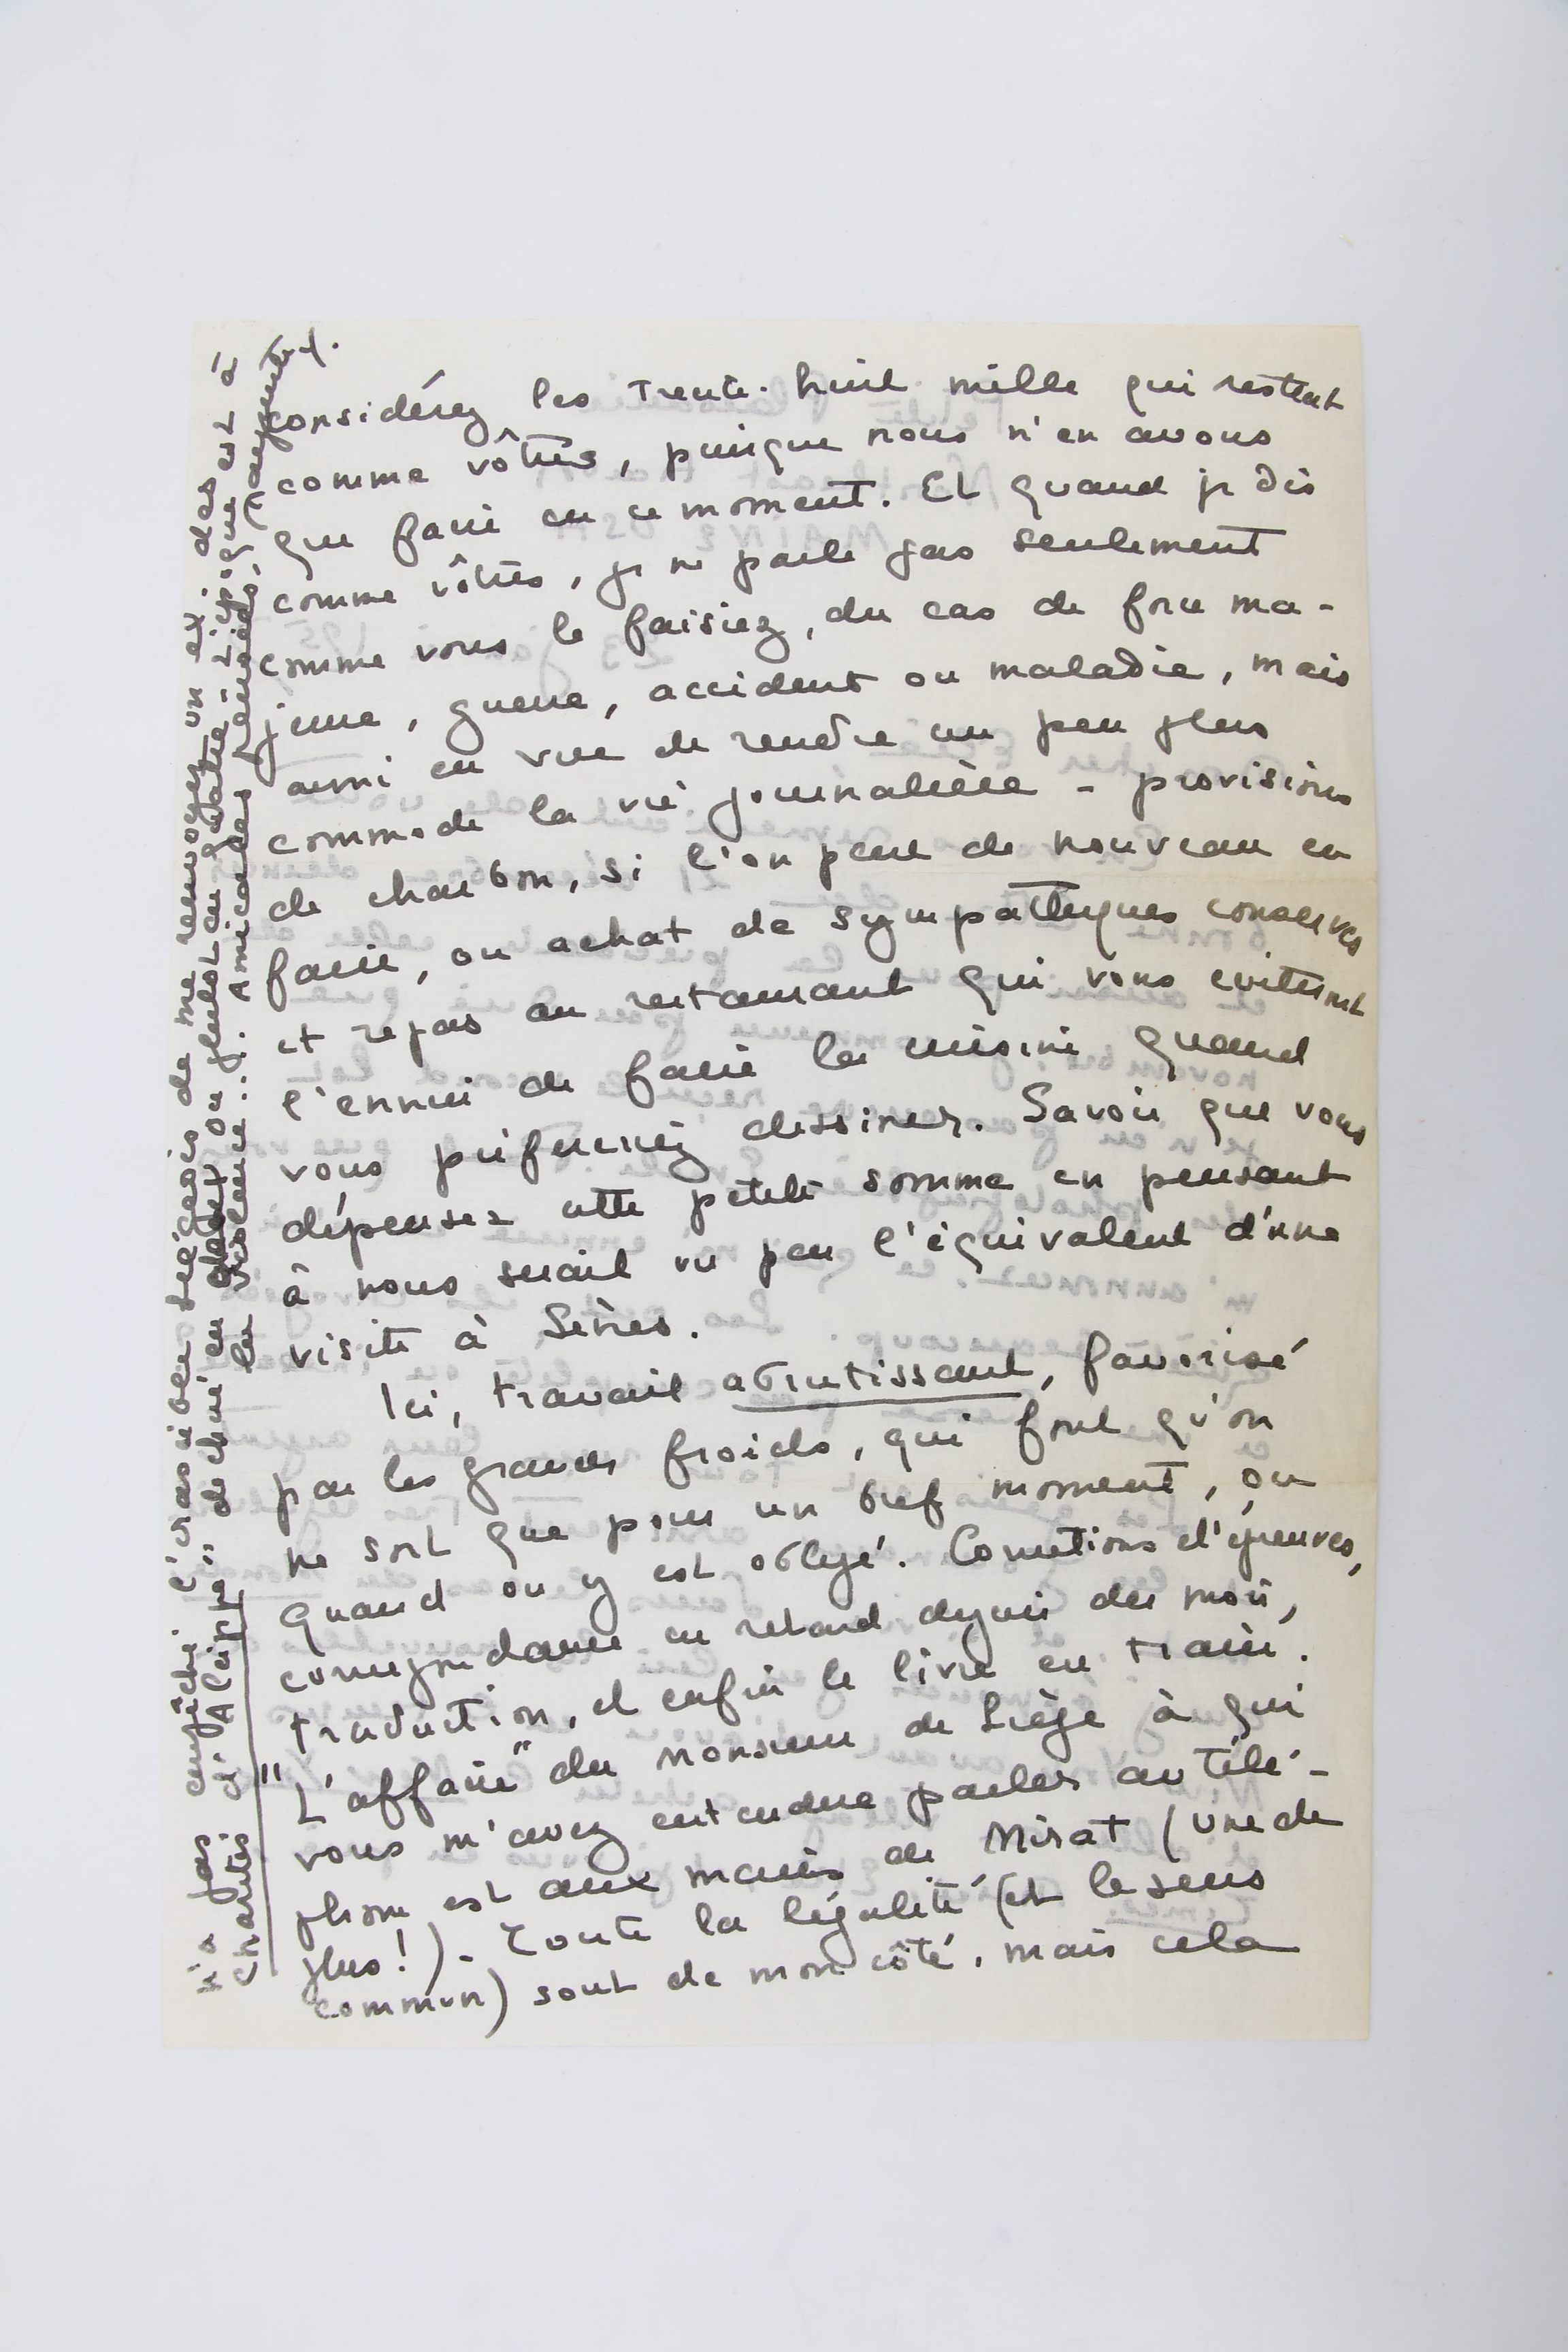 considérez les trente-huit mille qui restent
comme vôtres, puisque nous n'en avons
que faire en ce moment. Et quand je dis
comme vôtres, je ne parle pas seulement
comme vous le faisiez, du cas de force ma-
jeure, guerre, accident ou maladie, mais
aussi en vue de rendre un peu plus
commode la vie journalière - provisions
de charbon, si l'on peut de nouveau en
faire, ou achat de sympathiques conserves
et repas au restaurant qui vous évitent
l'ennui de faire la cuisine quand
vous préfereriez dessiner. Savoir que vous
dépensez cette petite somme en pensant
à nous serait un peu l'équivalent d'une
visite à Sèvres.
Ici, travail abrutissant, favorisé
par les grands froids, qui font qu'on
ne sort que pour un bref moment, ou
quand on y est obligé. Corrections d'épreuves,
correspondance en retard depuis des mois,
traduction, et enfin le livre en train.
"L'affaire" du Monsieur de Liège à qui
vous m'avez entendue parler au télé-
phone est aux mains de Mirat (une de
plus!). Toute la légalité (et le sens
commun) sont de mon côté, mais cela
n'a pas empêché l'irascible Liégeois de me renvoyer un ex. des
charités d'Alcippe" déchiré en quatre
la violence... Amicales pensées,